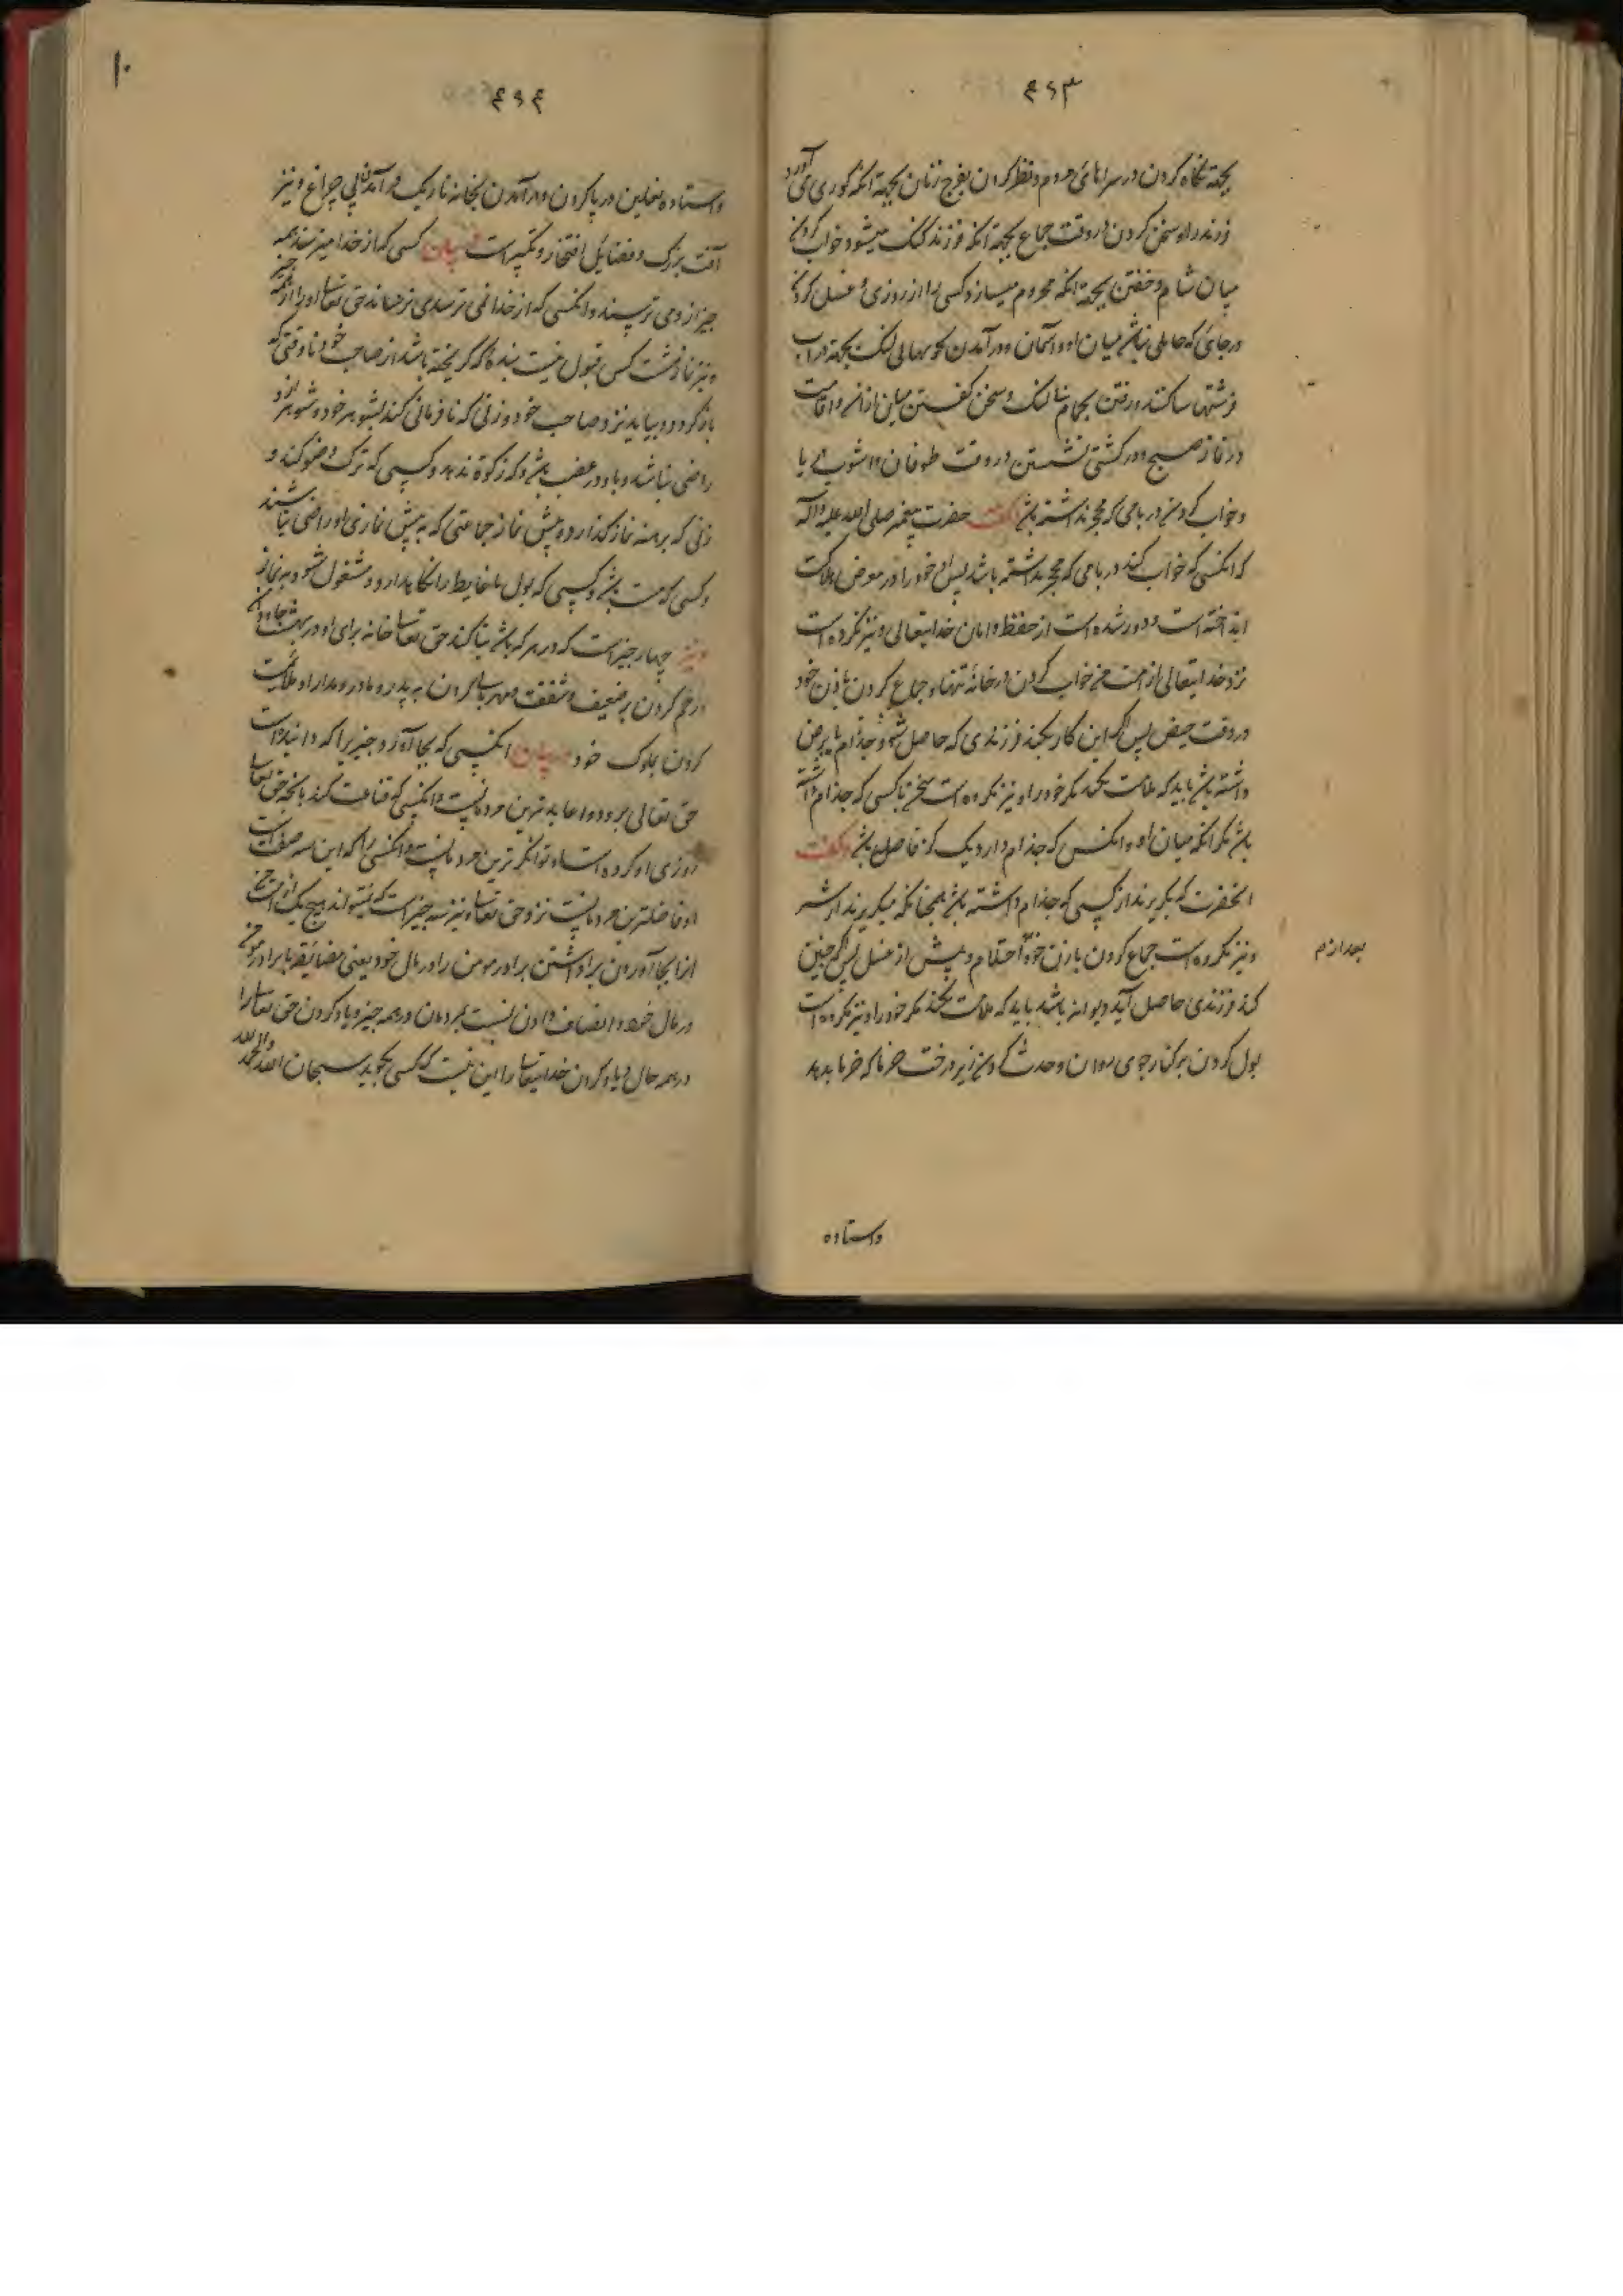 ۴۶۳
بجهة نگاه کردن در سراهای مردم و نظر کردن بفرج زنان بجهة آنکه کوری می آورد
فرزند را و سخن کردن در وقت جماع بجهة آنکه فرزند گنگ میشود و خواب کردن
میان شام و خفتن بجهة آنکه محروم میسازد کسی را از روزی و غسل کردن
در جائی که حایلی نباشد میان او و آسمان و در آمدن بجویهابی لنگ بجهة در آب
فرشتها ساکنند و رفتن بحمام بی لنگ و سخن گفتن میان اذان و اقامت
در نماز صبح و در کشتی نشستن در وقت طوفان و اشوب دریا
و خواب کردن در بامی که محجر نداشته باشد و گفت حضرت پیغمبر صلی الله علیه و آله
که انکسی که خواب کند در بامی که محجر نداشته باشد پس او خود را در معرض هلاکت
انداخته است و دور شده است از حفظ و امان خدایتعالی و نیز مکروه است
نزد خدایتعالی از امت من خواب کردن در خانۀ تنها و جماع کردن با زن خود
در وقت حیض پس اگر این کار بکند فرزندی که حاصل شود جذام یا برص
داشته باشد باید که ملامت نکند مگر خود را و نیز مکروه است سخن با کسی که جذام داشته
باشد مگر آنکه میان او و انکس که جذام دارد یک گز فاصله باشد و گفت
انحضرت که بگریزند از کسی که جذام داشته باشد همچنانکه میگریزند از شیر
و نیز مکروه است جماع کردن با زن خود احتلام و پیش از غسل پس اگر چنین
بعد از
کند فرزندی حاصل آید دیوانه باشد باید که ملامت نکند مگر خود را و نیز مکروه است
بول کردن بر کنار جوی روان و حدث کردن زیر درخت خرما که خرما بدهد
واستاده
۱۰
۴۶۴
واستاده نعلین در پا کردن و در آمدن بخانه تاریک در آمدن بی چراغ و نیز
آفت بزرگ و فضایل افتخار و تکبر است کسی که از خدا میترسد همه
چیز از و می ترسند و انکسی که از خدا نمی ترسد می ترساند حق تعالی او را از همه چیز
و نیز نماز هشت کس قبول نیست بندۀ که گریخته باشد از صاحب خود تا وقتی که
باز گردد و بیاید نزد صاحب خود و زنی که نافرمانی کند بشوهر خود و شوهر از و
راضی نباشد و با و در غضب باشد و که زکوة ندهد و کسی که ترک وضو کند و
زنی که برهنه نماز گذارد و پیش نماز جماعتی که به پیش نمازی او راضی نباشند
و کسی که مست باشد و کسی که بول یا غایط را نگاه دارد و مشغول شود بنماز
و نیز چهار چیز است که در هر که باشد بنا کند حق تعالی خانه برای او در بهشت
و رحم کردن بر ضعیف و شفقت و مهربانی کردن به پدر و مادر و مدارا و ملایمت
کردن بملوک خود انکسی که بجا آورد چیزیرا که
حق تعالی بر و عابد ترین مردمانست و انکسی که قناعت کند بآنچه حق تعالی
روزی او کرده است او توانگر ترین مردمانست و انکسی را که این سه صفت است
او فاضلترین مردمانست نزد حق تعالی و نیز سه چیز است که نمیتواند هیچ یک از امت من
انرا بجا آوردن برادر مومن را در مال خود یعنی مضایقه با برادر مومن
در مال خود و انصاف دادن نسبت بمردمان در همه چیز و یاد کردن حق تعالی را
در همه حال و یاد کردن خدایتعالی را این نیست که کسی بگوید سبحان الله و الحمد لله